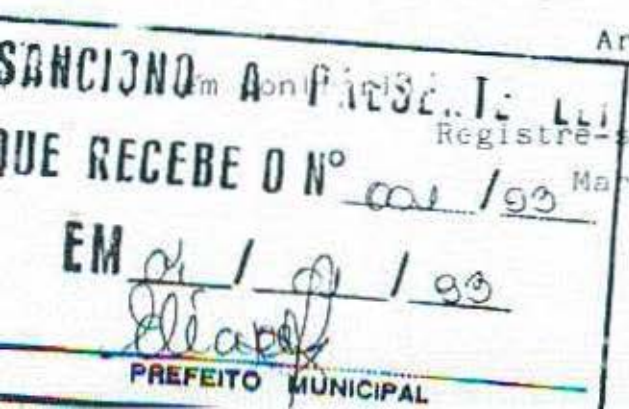 Ar
SANCIONO A PRESENTE LEI
Registre-s
QUE RECEBE O Nº 001 / 93
Mar
EM / / 93
PREFEITO MUNICIPAL